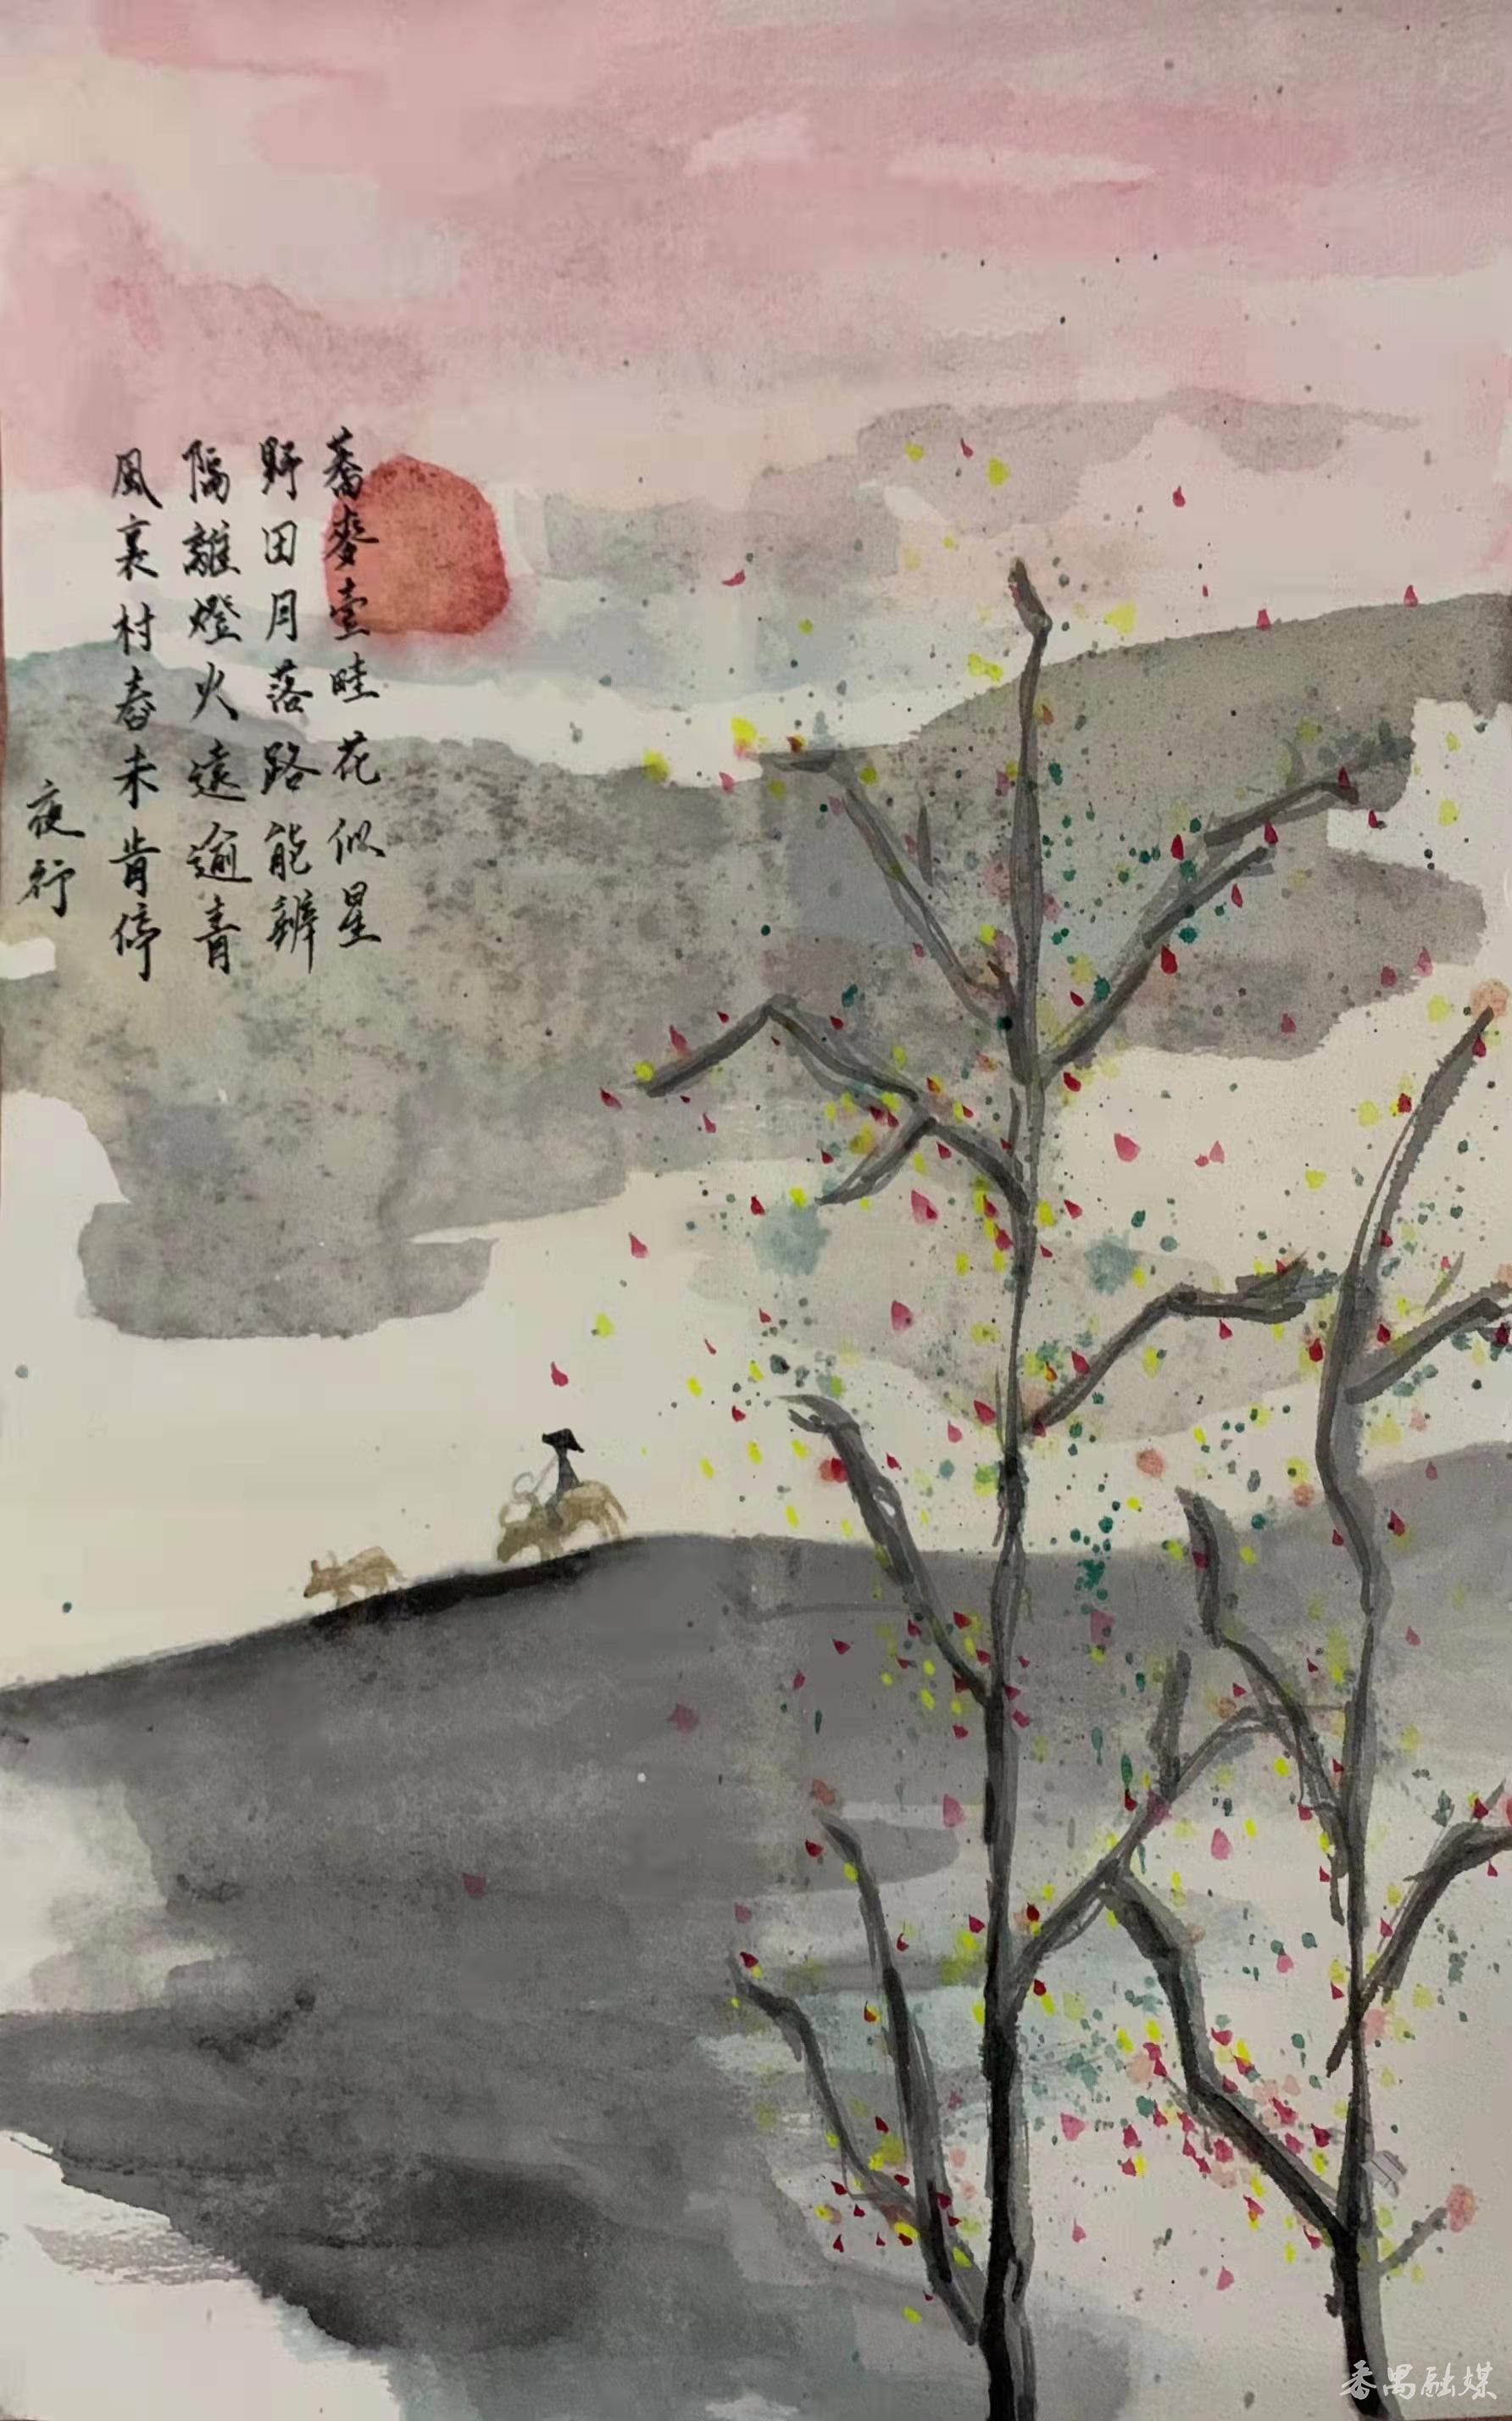 蕎麥壹畦花似星
野田月落路能辨
隔離燈火遠逾青
風裏村舂未肯停
夜行
番禺融媒